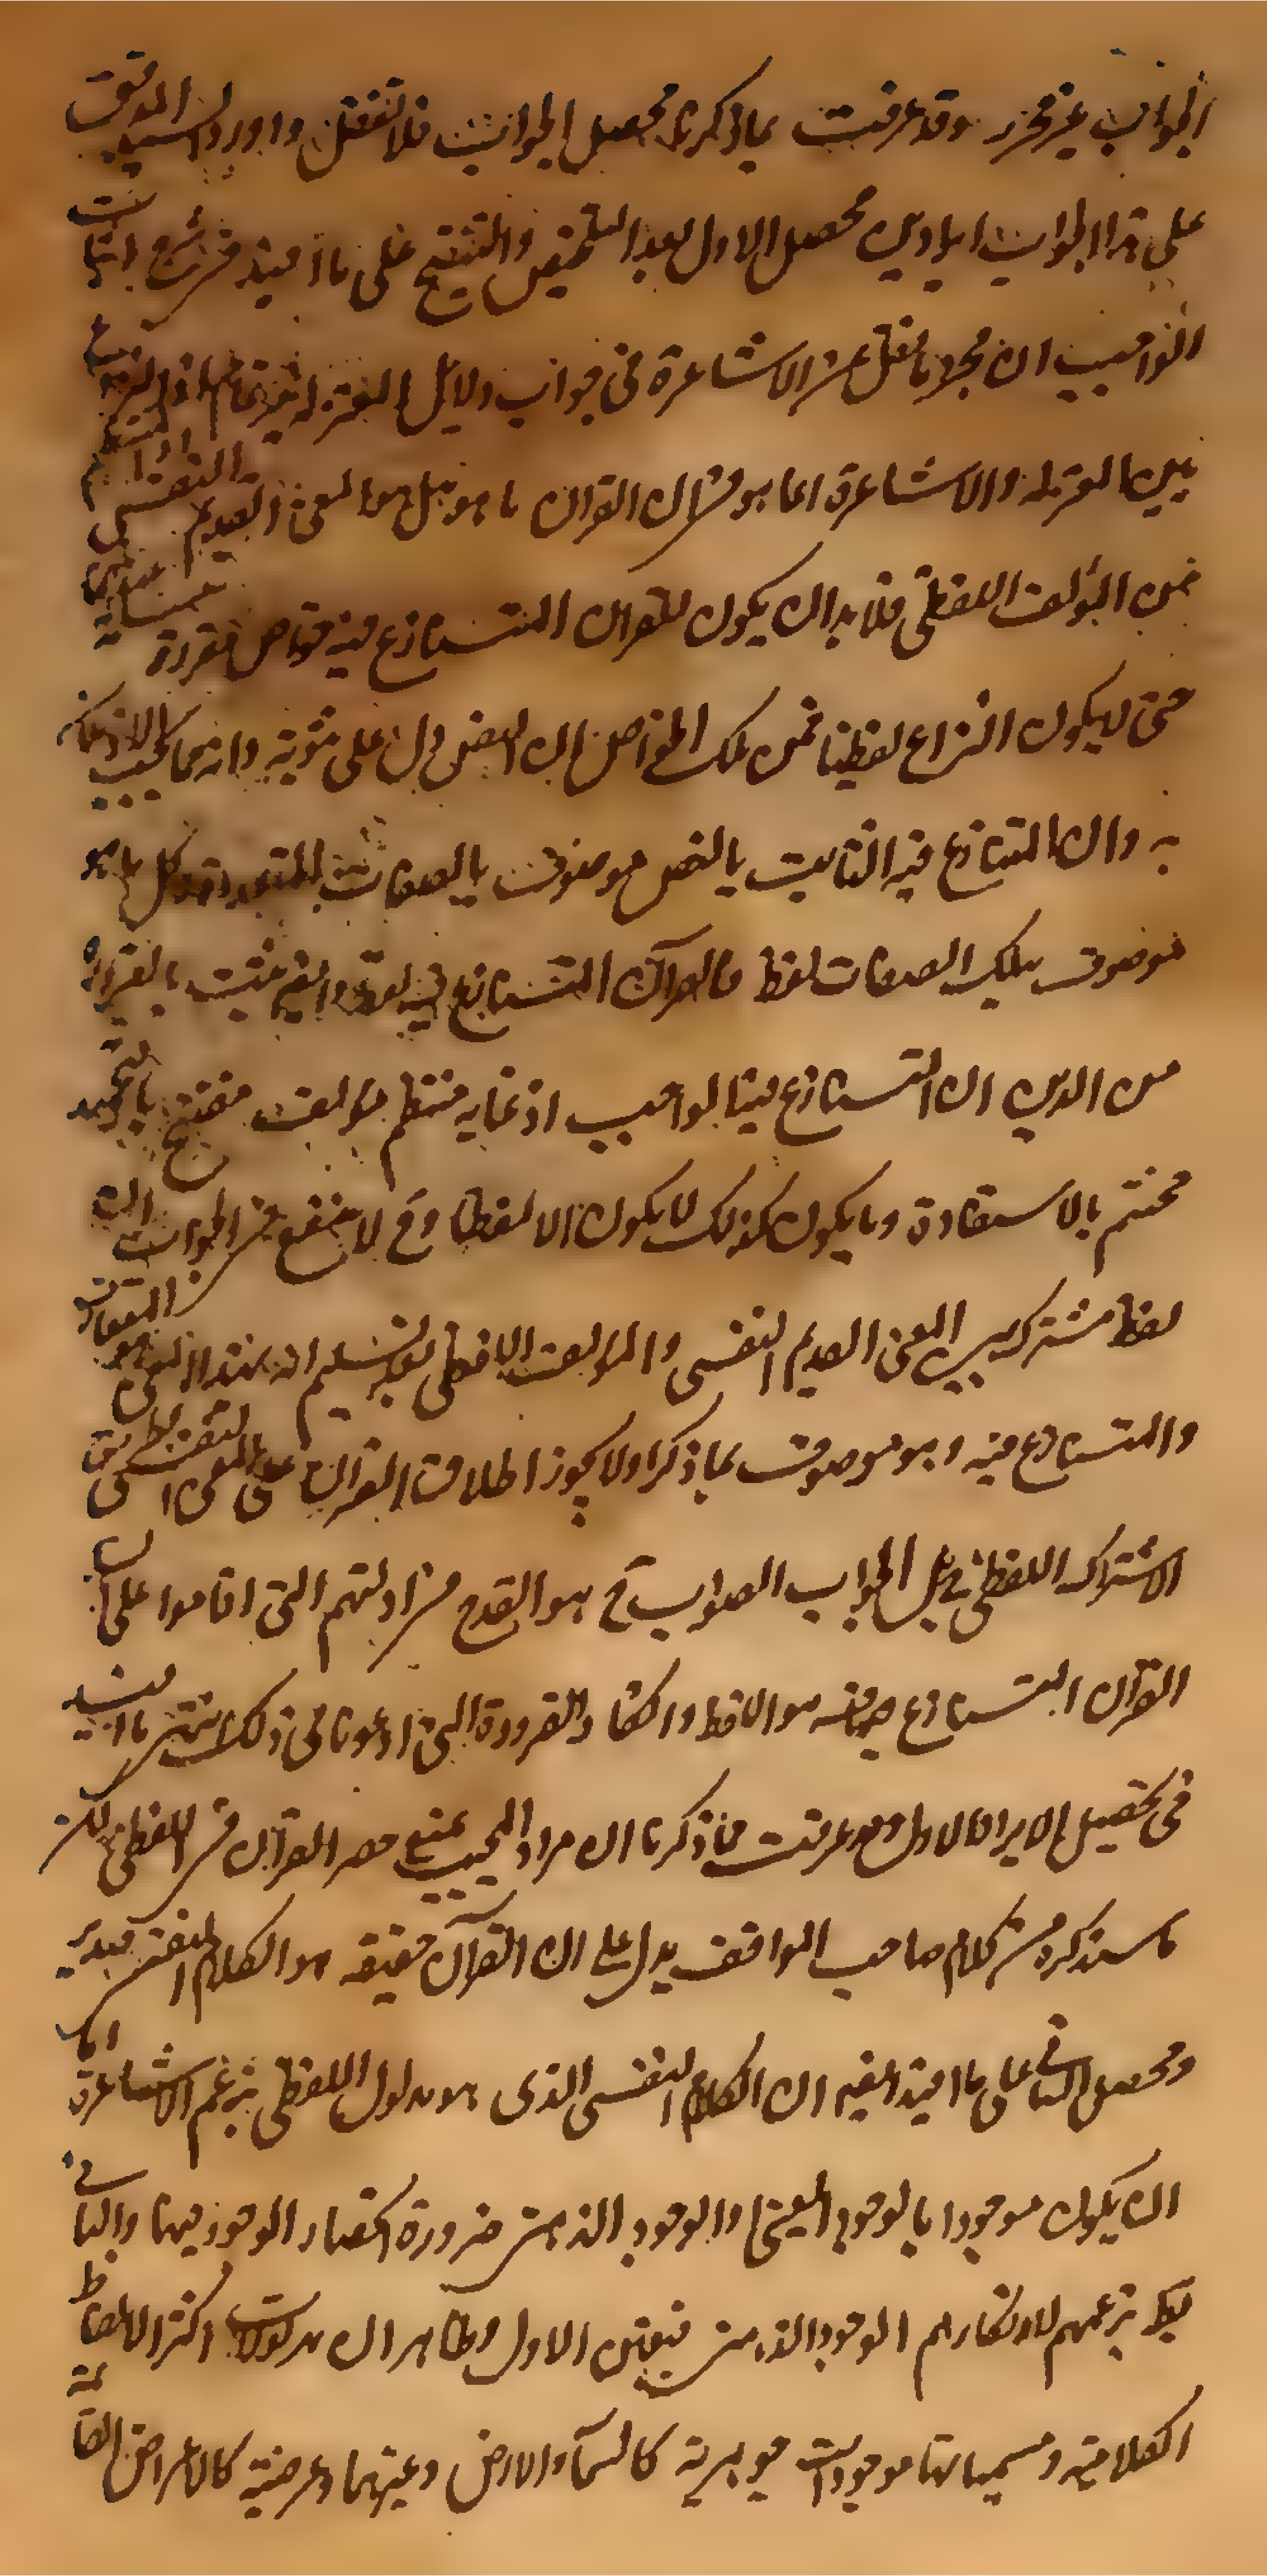 الجواب غير محرر وقد عرفت بما ذكرنا محصل الجواب فلا تغفل واورد السيد المدقق
على هذا الجواب ايرادين محصل الاول بعد التلخيص والتنقيح على ما افيد في شرح اثبات
الواجب ان مجرد ما نقل عن الاشاعرة في جواب دلايل المعتزلة غير تمام اذ النزاع
بين المعتزلة والاشاعرة انما هو في ان القران ما هو هل هو المعنى القديم النفسي
من المؤلف اللفظي فلا بد ان يكون للقران المتنازع فيه خواص مقررة
حتى لا يكون النزاع لفظيا فمن تلك الخواص ان النص دل على ثبوته وانه مما يجب الاذعان
به وان المتنازع فيه الثابت بالنص موصوف بالصفات المتعددة وكل ما هو
موصوف بتلك الصفات لفظ فالقرآن المتنازع فيه لفظ وايضا ثبت بالضرورة
من الدين ان المتنازع فيه الواجب اذعانه منتظم مؤلف مفتتح بالتحميد
مختتم بالاستعاذة وما يكون كذلك لا يكون الا لفظا وح لا ينفع في الجواب ان
لفظ مشترك بين المعنى القديم النفسي والمؤلف اللفظي بعد تسليم ان
والمتنازع فيه وهو موصوف بما ذكر اولا يجوز اطلاق القران على المعنى النفسي
الاشتراك اللفظي بل الجواب الصواب ح هو القدح في ادلتهم التي اقاموا على ان
القرآن المتنازع فيه هو الالفاظ وانكار الضرورة التي ادعوها في ذلك انتهى ما افيد
في تحصيل الايراد الاول وقد عرفت مما ذكرنا ان مراد المجيب منع حصر القرآن في اللفظي لكن
ما سنذكره من كلام صاحب المواقف يدل على ان القرآن حقيقة هو الكلام النفسي فتدبر
ومحصل الثاني على ما افيد ايضا ان الكلام النفسي الذي هو مدلول اللفظي بزعم الاشاعرة اما
ان يكون موجودا بالوجود العيني او الوجود الذهني ضرورة انحصار الوجود فيهما والثاني
بط بزعمهم لانكارهم الوجود الذهني فيتعين الاول وظاهر ان مدلولات اكثر الالفاظ
الكلامية ومسمياتها موجودات جوهرية كالسماء والارض وغيرهما وعرضية كالاعراض القائمة